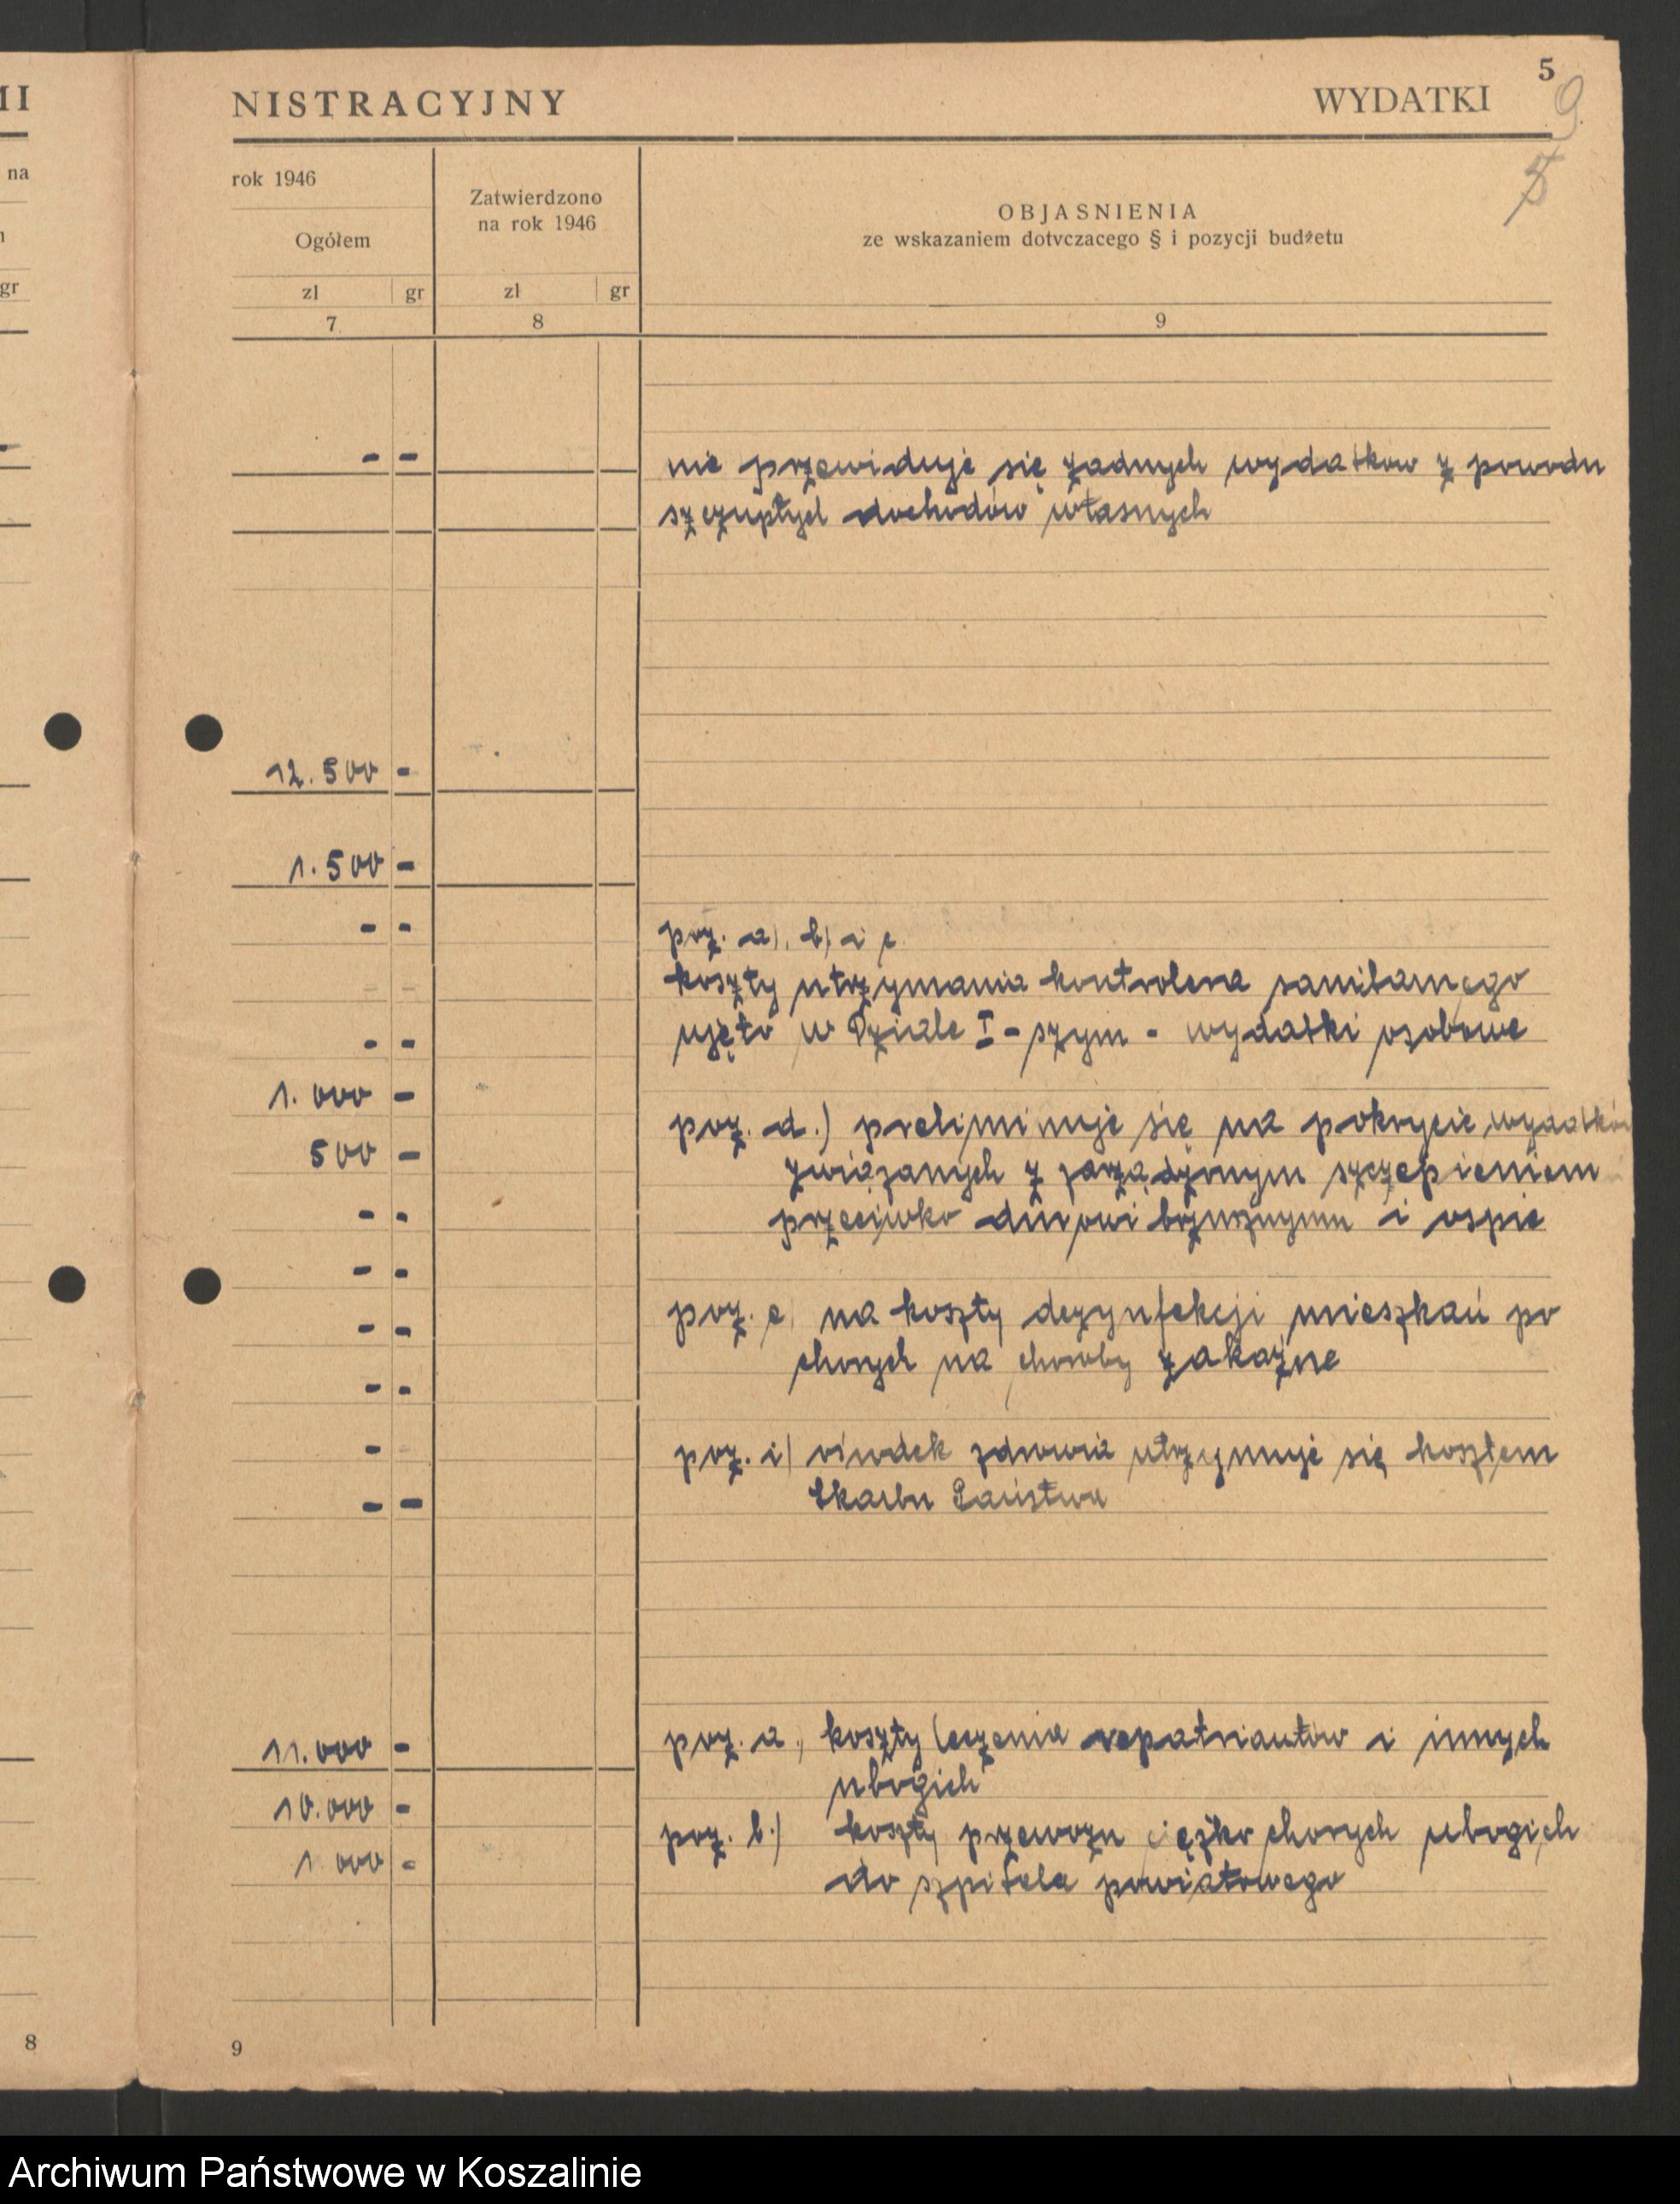 MI
na
gr
8
NISTRACYJNY
WYDATKI
5
9
5
rok 1946
Ogółem
zł gr
7
Zatwierdzono
na rok 1946
zł gr
8
OBJASNIENIA
ze wskazaniem dotyczacego § i pozycji budżetu
9
- -
nie przewiduje się żadnych wydatkow z powodu
szczupłych dochodów własnych
12.500 -
1.500 -
- -
poz. a), b) i c
koszty utrzymania kontrolera sanitarnego
ujęto w Dziale I-szym - wydatki osobowe
- -
1.000 -
poz. d.) preliminuje się na pokrycie wydatków
500 -
związanych z zarządzonym szczepieniem
- -
przeciwko durowi brzusznymu i ospie
- -
- -
poz. e) na koszty dezynfekcji mieszkań po
chorych na choroby zakaźne
- -
- -
poz. i) ośrodek zdrowia utrzymuje się kosztem
- -
Skarbu Państwa
11.000 -
poz. a, koszty leczenia repatriantów i innych
ubogich
10.000 -
poz. b.) koszty przewozu ciężko chorych ubogich
1 000 -
do szpitala powiatowego
9
Archiwum Państwowe w Koszalinie